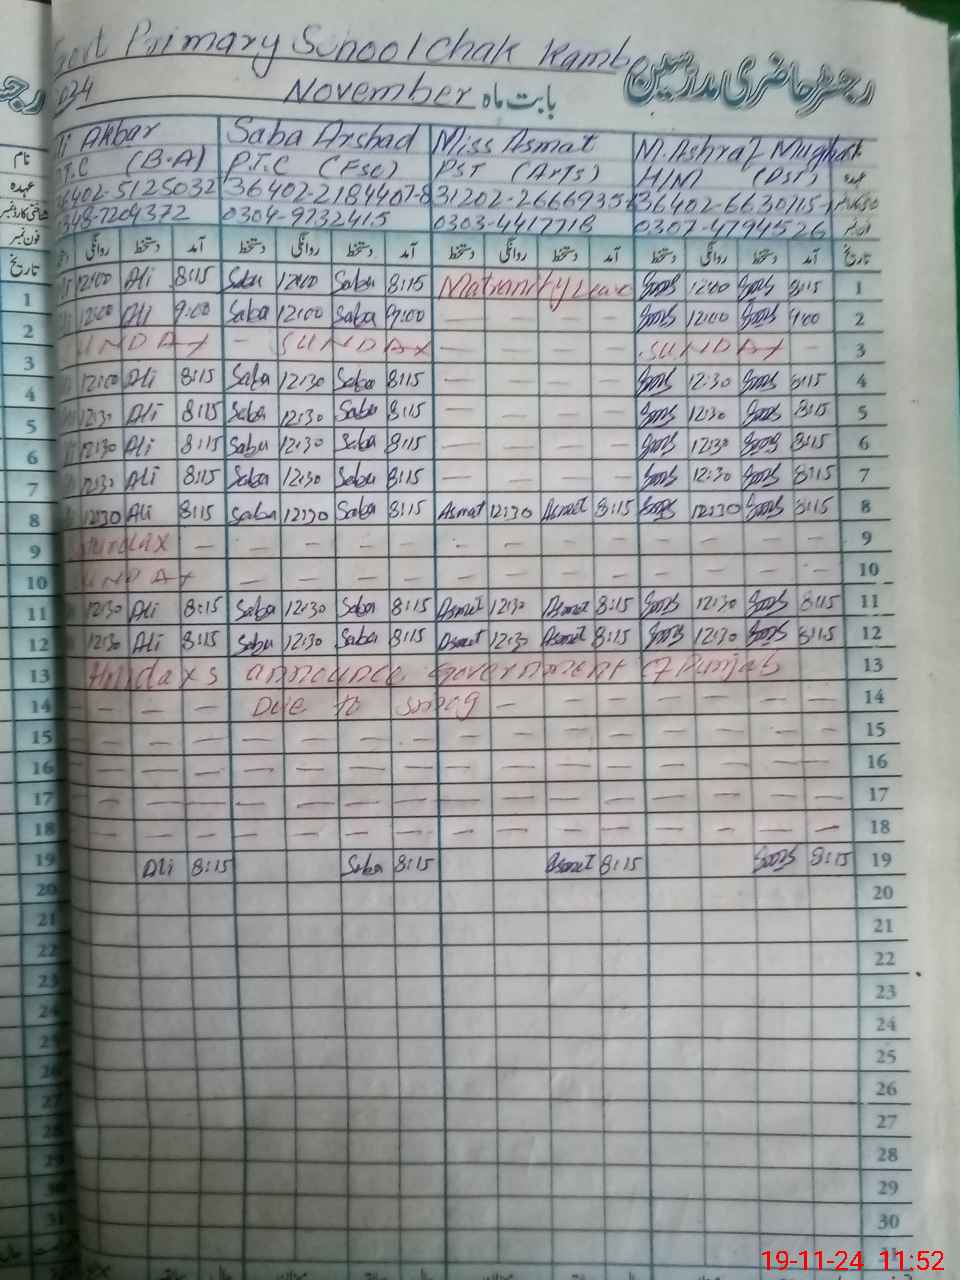 Primary School Chak
رجسٹر حاضری مدرسین
November بابت ماہ
Ali Akbar Saba Arshad Miss Asmat M. Ashraf Mughal
P.T.C (B.A) P.T.C (Fsc) PST (Arts) H/M (PST) عہدہ
36402-5125032 36402-2184407-8 31202-2666935 36402-6630115
0348-7204372 0304-9732415 0303-4417718 0307-4794526
روانگی دستخط آمد دستخط روانگی دستخط آمد دستخط روانگی دستخط آمد دستخط روانگی دستخط آمد تاریخ
1 12:00 Ali 8:15 Saba 12:00 Saba 8:15 Matranity Leave 12:00 8:15 1
2 12:00 Ali 9:00 Saba 12:00 Saba 9:00 — — — — 12:00 9:00 2
3 SUNDAY — SUNDAY — — — — SUNDAY — 3
4 12:00 Ali 8:15 Saba 12:30 Saba 8:15 — — — — 12:30 8:15 4
5 12:30 Ali 8:15 Saba 12:30 Saba 8:15 — — — — 12:30 8:15 5
6 12:30 Ali 8:15 Saba 12:30 Saba 8:15 — — — — 12:30 8:15 6
7 12:30 Ali 8:15 Saba 12:30 Saba 8:15 — — — — 12:30 8:15 7
8 12:30 Ali 8:15 Saba 12:30 Saba 8:15 Asmat 12:30 Asmat 8:15 12:30 8:15 8
9 — — — — — — — — — — — — — 9
10 SUNDAY — — — — — — — — — — — — 10
11 12:30 Ali 8:15 Saba 12:30 Saba 8:15 Asmat 12:30 Asmat 8:15 12:30 8:15 11
12 12:30 Ali 8:15 Saba 12:30 Saba 8:15 Asmat 12:30 Asmat 8:15 12:30 8:15 12
13 announce government of Punjab 13
14 — — — — Due to smog — — — — — — — 14
15 — — — — — — — — — — — — — — — 15
16 — — — — — — — — — — — — — — — 16
17 — — — — — — — — — — — — — — — 17
18 — — — — — — — — — — — — — — — 18
19 Ali 8:15 Saba 8:15 Asmat 8:15 8:15 19
20 20
21 21
22 22
23 23
24 24
25 25
26 26
27 27
28 28
29 29
30
31 31
19-11-24 11:52